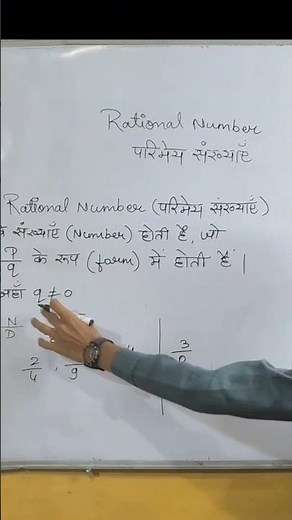 Rational Number
परिमेय संख्याएँ
Rational Number (परिमेय संख्याएँ)
संख्याएँ (Number) होती हैं, जो
p/q के रूप (form) में होती हैं |
जहाँ q ≠ 0
N/D
2/4 ,
9
3